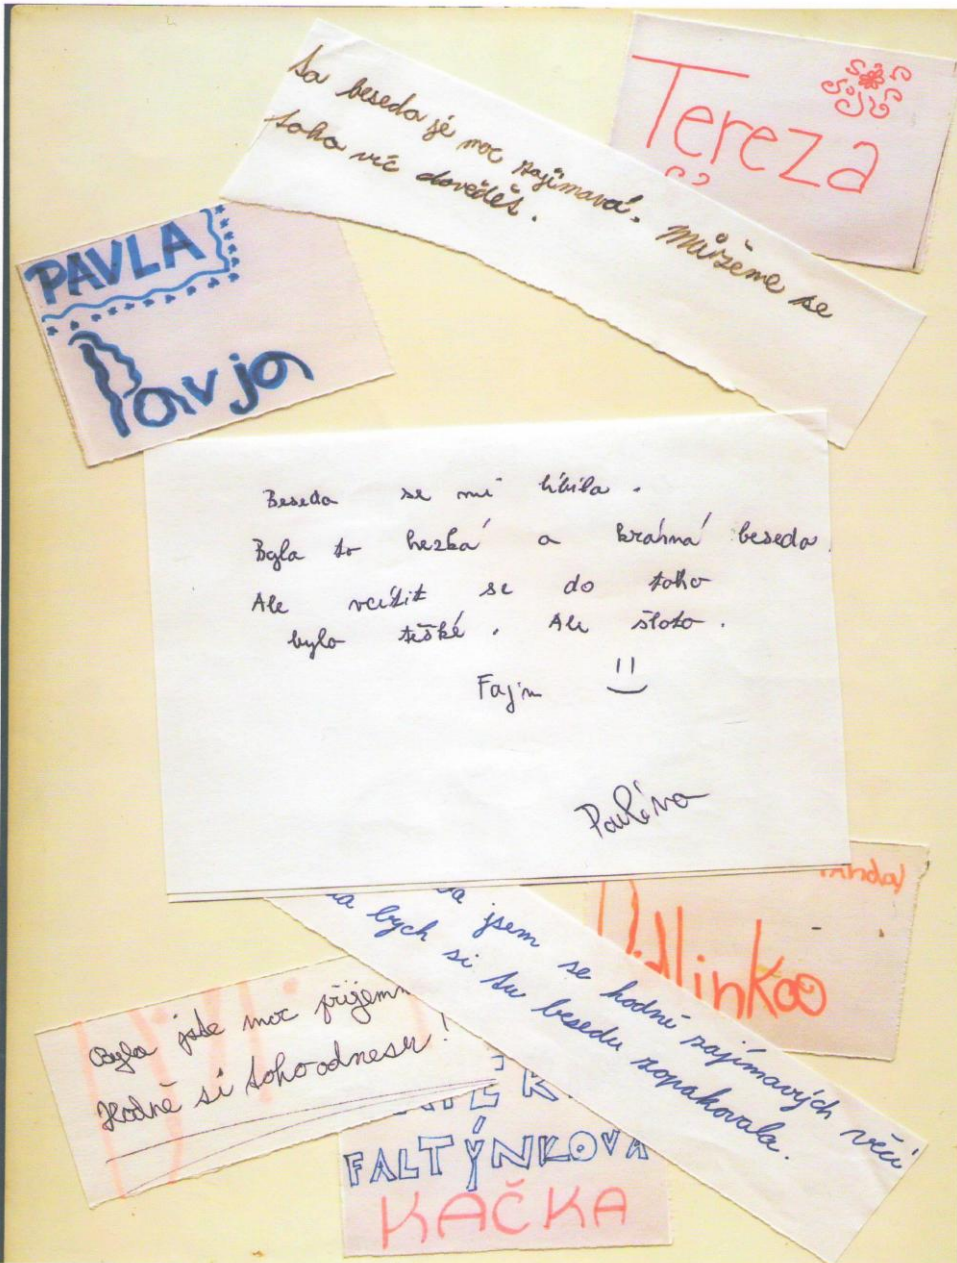 Ta beseda je moc zajímavá. Můžeme se
toho víc dovědět.
Tereza
PAVLA
Pavja
Beseda se mi líbila.
Byla to hezká a krásná beseda.
Ale vcítit se do toho
bylo těšké. Ale šloto.
Fajn
Pavlína
jsem se hodně zajímavých věcí
bych si tu besedu zopakovala.
linkoo
Byla jste moc příjemn
Hodně si toho odnesu!
FALTÝNKOVÁ
KAČKA